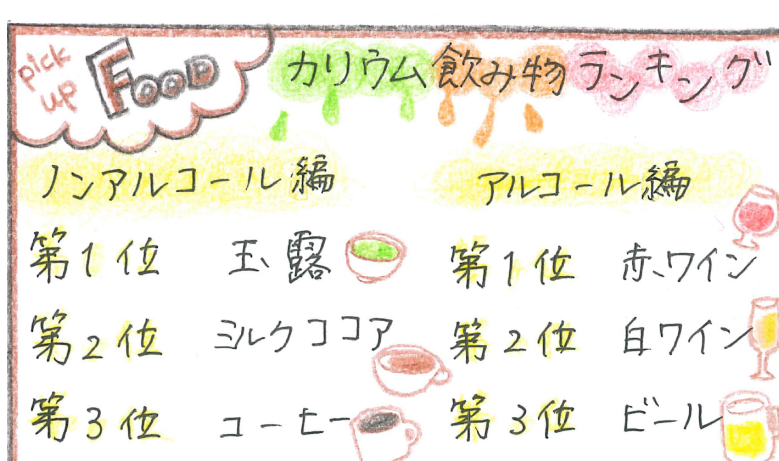 pick up FOOD カリウム飲み物ランキング
ノンアルコール編
第1位 玉露
第2位 ミルクココア
第3位 コーヒー
アルコール編
第1位 赤ワイン
第2位 白ワイン
第3位 ビール